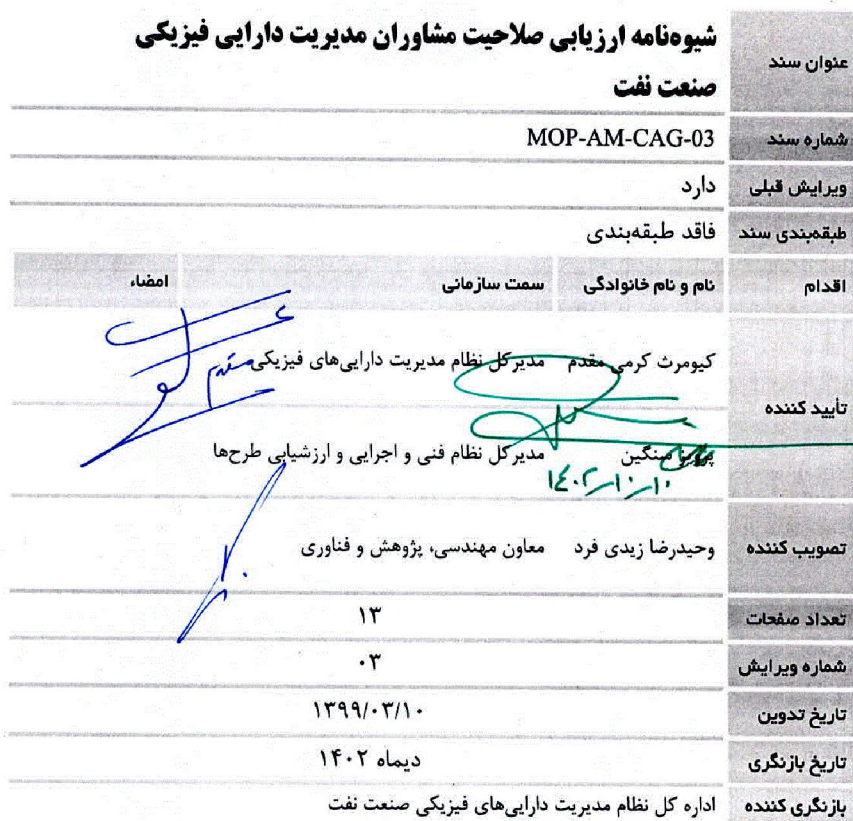 عنوان سند شیوه‌نامه ارزیابی صلاحیت مشاوران مدیریت دارایی فیزیکی
صنعت نفت
شماره سند MOP-AM-CAG-03
ویرایش قبلی دارد
طبقه‌بندی سند فاقد طبقه‌بندی
اقدام نام و نام خانوادگی سمت سازمانی امضاء
تأیید کننده
کیومرث کرمی مقدم مدیرکل نظام مدیریت دارایی‌های فیزیکی
مقدم
پرویز سنگین مدیرکل نظام فنی و اجرایی و ارزشیابی طرح‌ها
۱۴۰۲/۱۰/۱۰
تصویب کننده وحیدرضا زیدی فرد معاون مهندسی، پژوهش و فناوری
تعداد صفحات ۱۳
شماره ویرایش ۰۳
تاریخ تدوین ۱۳۹۹/۰۳/۱۰
تاریخ بازنگری دیماه ۱۴۰۲
بازنگری کننده اداره کل نظام مدیریت دارایی‌های فیزیکی صنعت نفت